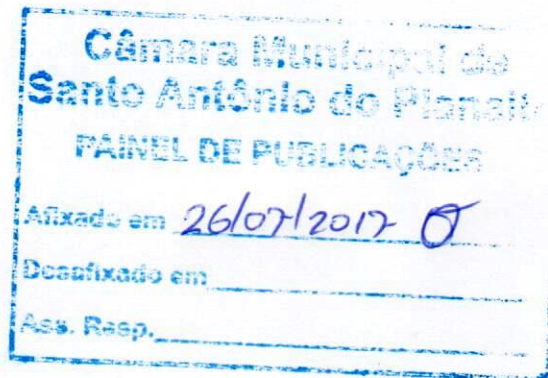 Câmara Municipal de
Santo Antônio do Planalto
PAINEL DE PUBLICAÇÕES
Afixado em 26/07/2017
Desafixado em
Ass. Resp.